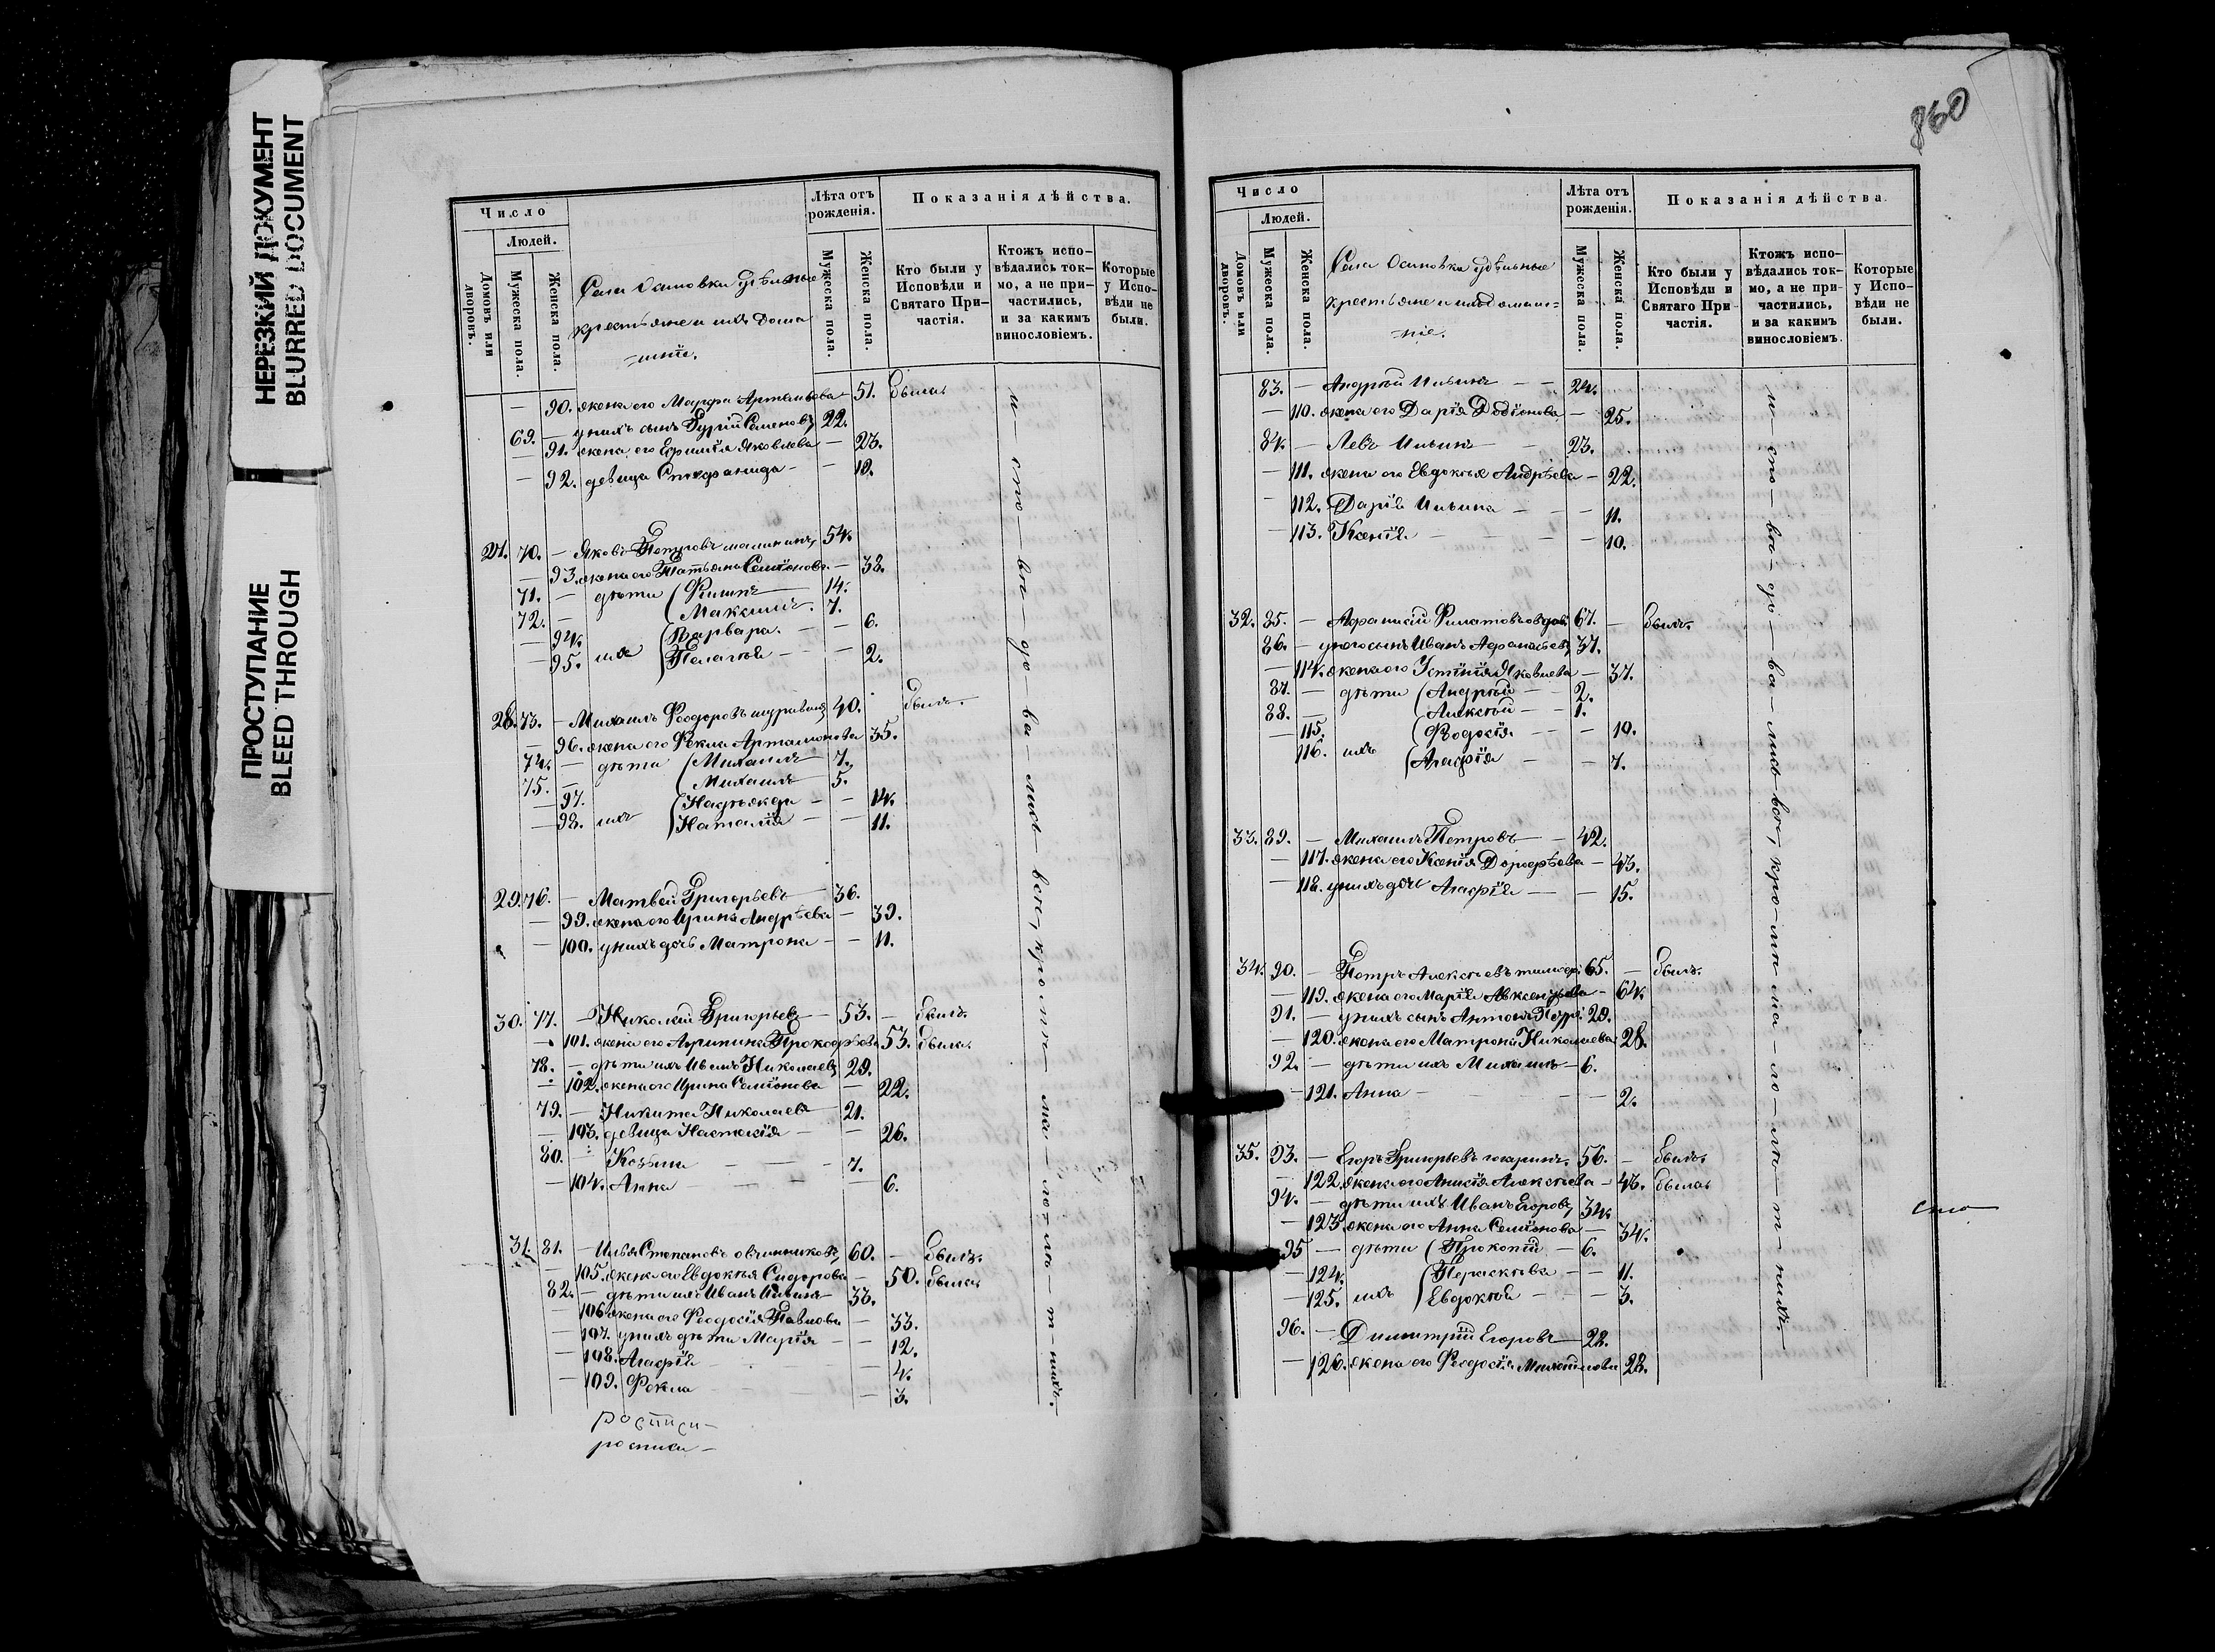 НЕРЕЗКИЙ ДОКУМЕНТ
BLURRED DOCUMENT
ПРОСТУПАНИЕ
BLEED THROUGH
Число
Людей.
Домовъ или дворовъ.
Мужеска пола.
Женска пола.
Села Осиновки удѣльные
крестьяне и ихъ дома
-шніе.
Лѣта отъ рожденія.
Мужеска пола.
Женска пола.
Показанія дѣйства.
Кто были у Исповѣди и Святаго При-частія.
Ктожъ испо-вѣдались ток-мо, а не при-частились, и за какимъ винословіемъ.
Которые у Испо-вѣди не были.
— 90. жена его Марфа Артемьева — 51. была.
69. — у нихъ сынъ Гурій Семеновъ 22.
— 91. жена его Ефимія Яковлева — 23.
— 92. дѣвица Стефанида — — 18.
27. 70. — Яковъ Петровъ малининъ 54.
— 93. жена его Татьяна Семіонова — 38.
71. — дѣти Филипъ — 14.
72. — Максимъ. 7.
— 94. Варвара. — — 6.
— 95. ихъ Пелагея — — 2.
28. 73. — Михаилъ Феодоровъ журавлевъ 40. былъ.
— 96. жена его Фекла Артамонова 35.
74. — дѣти Михаилъ — 7.
75. — Михаилъ 5.
— 97. Надежда — — 14.
— 98. ихъ Наталія — — 11.
29. 76. — Матвей Григорьевъ — 36.
— 99. жена его Ирина Андрѣева — 39.
— 100. у нихъ дочь Матрона — — 11.
30. 77. — Николай Григорьевъ — 53. — былъ.
— 101. жена его Агрипина Прокофьева 53. была.
78. — дѣти ихъ Иванъ Николаевъ 29.
— 102. жена его Ирина Семіонова — 22.
79. — Никита Николаевъ — 21.
— 103. дѣвица Настасія — — 26.
80. — Козьма — — — 7.
— 104. Анна — — — 6.
31. 81. — Илья Степановъ овчинниковъ 60. — былъ.
— 105. жена его Евдокія Сидорова — 50. была.
82. — дѣти ихъ Иванъ Ильинъ — 33.
— 106. жена его Феодосія Павлова — 33.
— 107. у нихъ дѣти Марія — — 12.
— 108. Агафія — 4.
— 109. Фекла — 3.
росписи —
росписи —
860
Число
Людей.
Домовъ или дворовъ.
Мужеска пола.
Женска пола.
Села Осиновки удѣльные
крестьяне и ихъ домаш=
ніе.
Лѣта отъ рожденія.
Мужеска пола.
Женска пола.
Показанія дѣйства.
Кто были у Исповѣди и Святаго При частія.
Ктожъ испо-вѣдались ток-мо, а не при-частились, и за какимъ винословіемъ.
Которые у Испо-вѣди не были.
83. — Андрей Ильинъ — — 24.
— 110. жена его Дарія Родіонова — 25.
84. — Левъ Ильинъ — 23.
— 111. жена его Евдокія Андрѣева — 22.
— 112. Дарія Ильина — — — 11.
— 113. Ксенія — — — 10.
32. 85. — Афанасій Филатовъ вдов. 67. — былъ.
86. — у него сынъ Иванъ Афанасьевъ 37.
— 114. жена его Устинія Яковлева — 37.
87. — дѣти Андрей — 2.
88. — Алексей — 1.
— 115. Феодосія — — 10.
— 116. ихъ Агафія — — 7.
33. 89. — Михаилъ Петровъ — 42.
— 117. жена его Ксенія Дорофѣева — 43.
— 118. у нихъ дочь Агафія — — 15.
34. 90. — Петръ Алексѣевъ 65. — былъ.
— 119. жена его Марія Авксентьева — 64.
91. — у нихъ сынъ Антонъ Петр. 29.
— 120. жена его Матрона Николаева 28.
92. — дѣти ихъ Михаилъ — 6.
— 121. Анна — — — 2.
35. 93. — Егоръ Григорьевъ гагаринъ. 56. — былъ.
— 122. жена его Анисія Алексѣева — 43. была.
94. — дѣти ихъ Иванъ Егоровъ 34.
— 123. жена его Анна Семіонова — 34.
95 — дѣти Прокопій — 6.
— 124. Параскева — — 11.
— 125. ихъ Евдокія — — 3.
96. — Димитрій Егоровъ — 22.
— 126. жена его Феодосія Михайлова 22.